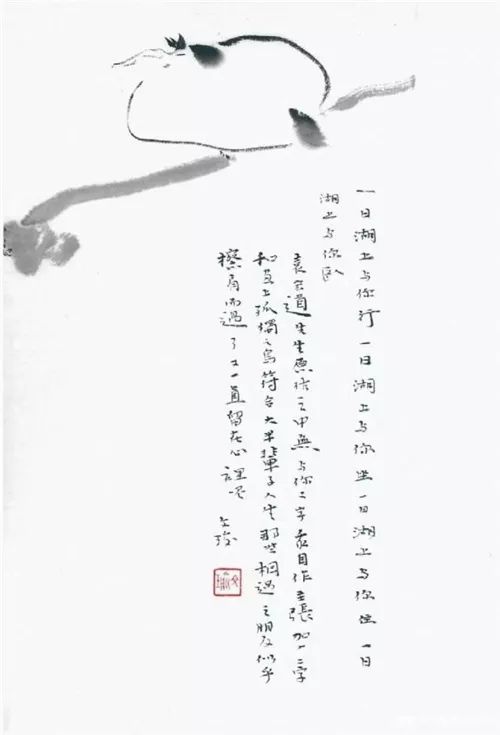 一日湖上与你行一日湖上与你坐一日湖上与你住一日
湖上与你卧
袁宏道先生原诗之中無与你二字我自作主張加二字
和画上孤獨之鳥符合大半輩子人生那些相遇之朋友似乎
擦肩而過了又一直留在心裡吧